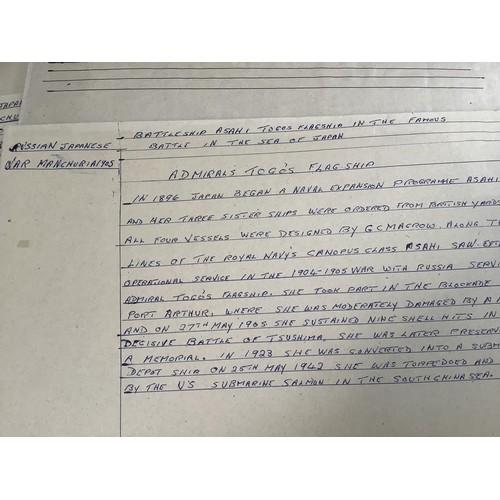 BATTLESHIP ASAHI TOGOS FLAGSHIP IN THE FAMOUS
BATTLE IN THE SEA OF JAPAN
RUSSIAN JAPANESE
WAR MANCHURIA 1905
ADMIRALS TOGO'S FLAGSHIP
IN 1896 JAPAN BEGAN A NAVAL EXPANSION PROGRAMME ASAHI
AND HER THREE SISTER SHIPS WERE ORDERED FROM BRITISH YARDS
ALL FOUR VESSELS WERE DESIGNED BY G.C MACROW. ALONG
LINES OF THE ROYAL NAVY'S CANOPUS CLASS ASAHI SAW
OPERATIONAL SERVICE IN THE 1904-1905 WAR WITH RUSSIA
ADMIRAL TOGO'S FLAGSHIP. SHE TOOK PART IN THE BLOCKADE
PORT ARTHUR, WHERE SHE WAS MODERATELY DAMAGED BY A
AND ON 27TH MAY 1905 SHE SUSTAINED NINE SHELL HITS IN
DECISIVE BATTLE OF TSUSHIMA, SHE WAS LATER
A MEMORIAL. IN 1923 SHE WAS CONVERTED INTO A
DEPOT SHIP ON 25TH MAY 1942 SHE WAS TORPEDOED AND
BY THE U'S SUBMARINE SALMON IN THE SOUTH CHINA SEA.